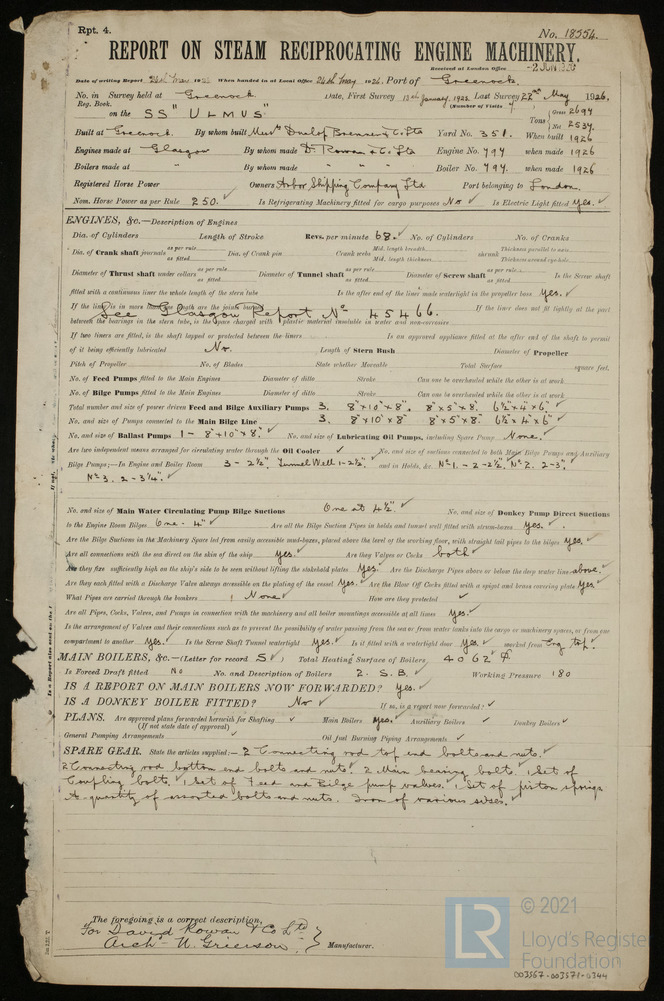 Rpt. 4.
No. 18554.
REPORT ON STEAM RECIPROCATING ENGINE MACHINERY.
Received at London Office -2 JUN 1926
Date of writing Report 1926 When handed in at Local Office 24th May 1926. Port of Greenock.
No. in Survey held at Greenock. Date, First Survey 13th January, 1926 Last Survey 22nd May 1926.
Reg. Book. (Number of Visits
on the SS "ULMUS" Tons Gross 2694 Net 2534
Built at Greenock. By whom built Messrs Dunlop Bremner & Co. Ltd Yard No. 351. When built 1926
Engines made at Glasgow By whom made D. Rowan & Co. Ltd Engine No. 794 when made 1926
Boilers made at " By whom made " " " Boiler No. 794. when made 1926
Registered Horse Power Owners Arbor Shipping Company Ltd Port belonging to London.
Nom. Horse Power as per Rule 250. ✓ Is Refrigerating Machinery fitted for cargo purposes No ✓ Is Electric Light fitted yes. ✓
ENGINES, &c.—Description of Engines
Dia. of Cylinders Length of Stroke Revs. per minute 68. ✓ No. of Cylinders No. of Cranks
Dia. of Crank shaft journals as per rule as fitted Dia. of Crank pin Crank webs Mid. length breadth Mid. length thickness shrunk Thickness parallel to axis Thickness around eye-hole
Diameter of Thrust shaft under collars as per rule as fitted Diameter of Tunnel shaft as per rule as fitted Diameter of Screw shaft as per rule as fitted Is the Screw shaft
fitted with a continuous liner the whole length of the stern tube Is the after end of the liner made watertight in the propeller boss yes. ✓
If the liner is in more than one length are the joints burned If the liner does not fit tightly at the part
See Glasgow Report No. 45466.
between the bearings in the stern tube, is the space charged with a plastic material insoluble in water and non-corrosive
If two liners are fitted, is the shaft lapped or protected between the liners Is an approved appliance fitted at the after end of the shaft to permit
of it being efficiently lubricated No. Length of Stern Bush Diameter of Propeller
Pitch of Propeller No. of Blades State whether Moveable Total Surface square feet.
No. of Feed Pumps fitted to the Main Engines Diameter of ditto Stroke Can one be overhauled while the other is at work
No. of Bilge Pumps fitted to the Main Engines Diameter of ditto Stroke Can one be overhauled while the other is at work
Total number and size of power driven Feed and Bilge Auxiliary Pumps 3. 8"×10"×8". 8"×5"×8". 6½"×4"×6". ✓
No. and size of Pumps connected to the Main Bilge Line 3. 8"×10"×8" 8"×5"×8". 6½"×4"×6" ✓
No. and size of Ballast Pumps 1 - 8"×10"×8". ✓ No. and size of Lubricating Oil Pumps, including Spare Pump None. ✓
Are two independent means arranged for circulating water through the Oil Cooler ✓ No. and size of suctions connected to both Main Bilge Pumps and Auxiliary
Bilge Pumps;—In Engine and Boiler Room 3 - 2½", Tunnel Well 1-2½". ✓ and in Holds, &c. No. 1. - 2-2½". No. 2. 2-3".
No. 3. 2-3¼". ✓
No. and size of Main Water Circulating Pump Bilge Suctions One at 4½". ✓ No. and size of Donkey Pump Direct Suctions
to the Engine Room Bilges One - 4" ✓ Are all the Bilge Suction Pipes in holds and tunnel well fitted with strum-boxes yes. ✓
Are the Bilge Suctions in the Machinery Space led from easily accessible mud-boxes, placed above the level of the working floor, with straight tail pipes to the bilges yes. ✓
Are all connections with the sea direct on the skin of the ship yes. ✓ Are they Valves or Cocks both ✓
Are they fixed sufficiently high on the ship's side to be seen without lifting the stokehold plates yes. ✓ Are the Discharge Pipes above or below the deep water line above. ✓
Are they each fitted with a Discharge Valve always accessible on the plating of the vessel yes. ✓ Are the Blow Off Cocks fitted with a spigot and brass covering plate yes ✓
What Pipes are carried through the bunkers None ✓ How are they protected ✓
Are all Pipes, Cocks, Valves, and Pumps in connection with the machinery and all boiler mountings accessible at all times yes. ✓
Is the arrangement of Valves and their connections such as to prevent the possibility of water passing from the sea or from water tanks into the cargo or machinery spaces, or from one
compartment to another yes. ✓ Is the Screw Shaft Tunnel watertight yes. ✓ Is it fitted with a watertight door yes ✓ worked from Eng. top. ✓
MAIN BOILERS, &c.—(Letter for record S ✓) Total Heating Surface of Boilers 4062 ☐'
Is Forced Draft fitted No No. and Description of Boilers 2. S.B. ✓ Working Pressure 180
IS A REPORT ON MAIN BOILERS NOW FORWARDED? yes. ✓
IS A DONKEY BOILER FITTED? No ✓ If so, is a report now forwarded? ✓
PLANS. Are approved plans forwarded herewith for Shafting ✓ Main Boilers yes. ✓ Auxiliary Boilers ✓ Donkey Boilers ✓
(If not state date of approval)
General Pumping Arrangements ✓ Oil fuel Burning Piping Arrangements ✓
SPARE GEAR. State the articles supplied:— 2 Connecting rod top end bolts and nuts. ✓
2 Connecting rod bottom end bolts and nuts. 2 Main bearing bolts. 1 Set of
Coupling bolts. 1 Set of Feed and Bilge pump valves. 1 Set of piston springs
A quantity of assorted bolts and nuts. Iron of various sizes. ✓
The foregoing is a correct description,
For David Rowan & Co Ltd
Arch. W. Grierson. Manufacturer.
LR © 2021
Lloyd's Register
Foundation
003567-003571-0344